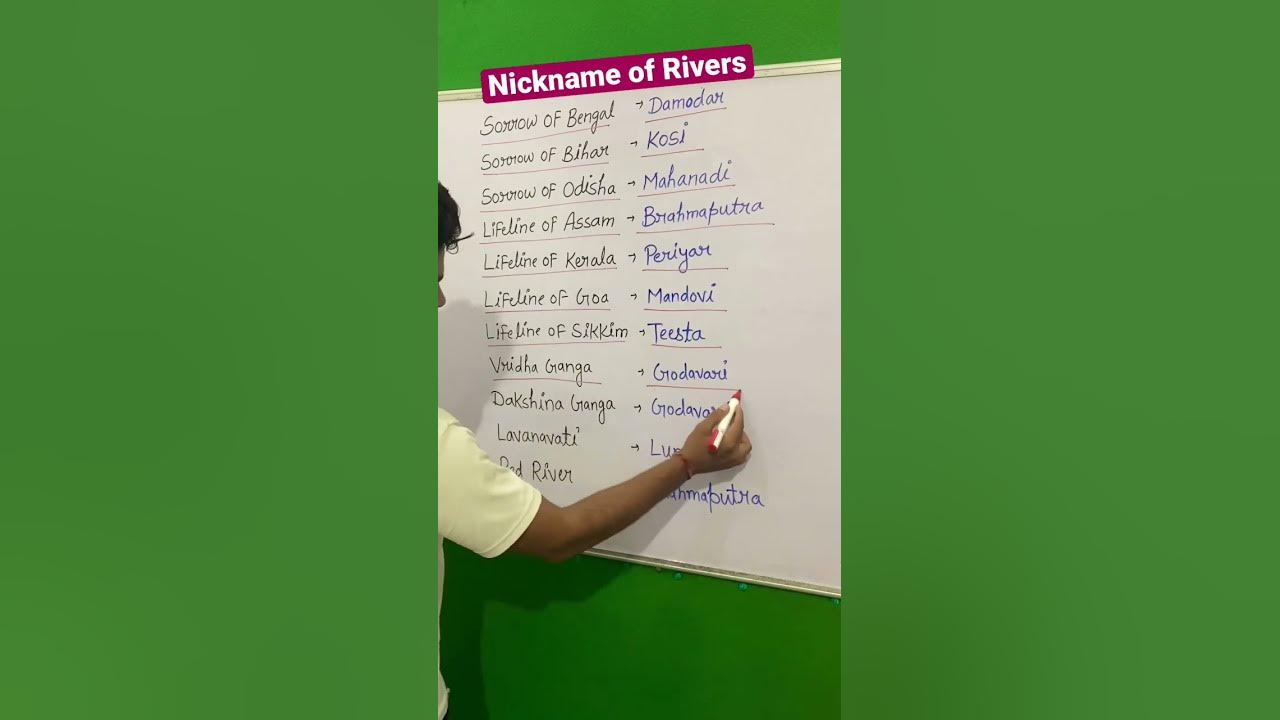 Nickname of Rivers
Sorrow of Bengal → Damodar
Sorrow of Bihar → Kosi
Sorrow of Odisha → Mahanadi
Lifeline of Assam → Brahmaputra
Lifeline of Kerala → Periyar
Lifeline of Goa → Mandovi
Lifeline of Sikkim → Teesta
Vridha Ganga → Godavari
Dakshina Ganga →
Lavanavati →
River